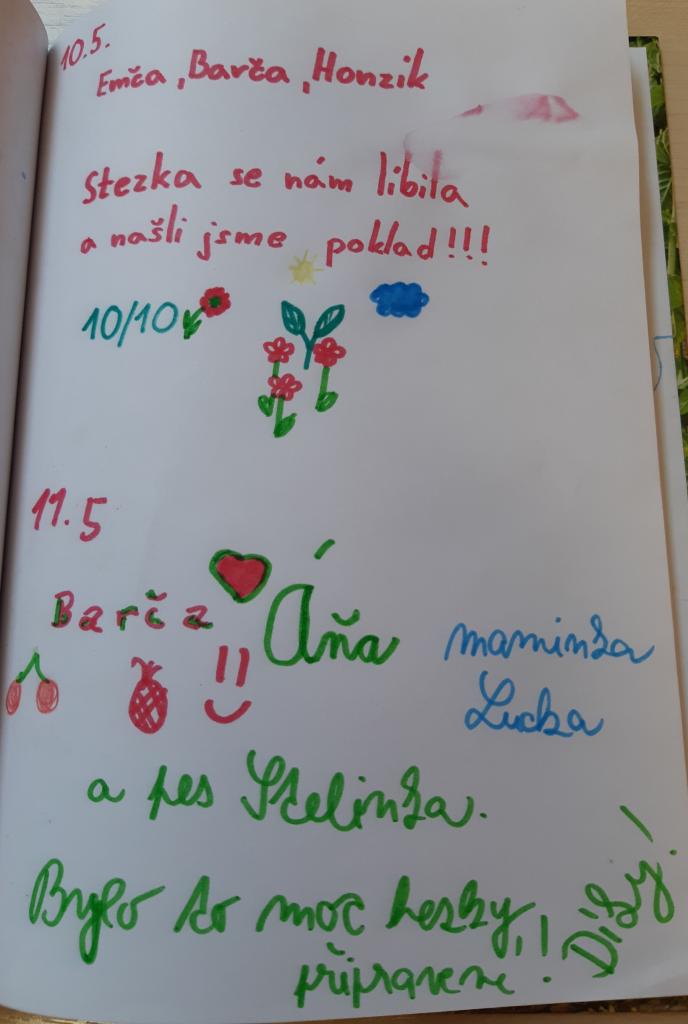 10.5.
Emča, Barča, Honzik
Stezka se nám líbila
a našli jsme poklad!!!
10/10
11.5
Barča Áňa maminka
Lucka
a pes Stelinka.
Bylo to moc hezky
připravené!! Díky!